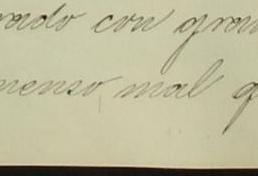 rado con gran
menso mal q